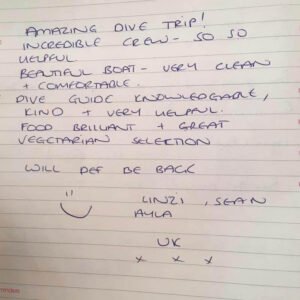 AMAZING DIVE TRIP!
INCREDIBLE CREW - SO SO
HELPFUL.
BEAUTIFUL BOAT - VERY CLEAN
+ COMFORTABLE.
DIVE GUIDE KNOWLEDGABLE,
KIND + VERY HELPFUL.
FOOD BRILLIANT + GREAT
VEGETARIAN SELECTION
WILL DEF BE BACK
LINZI, SEAN
AYLA
UK
x x x